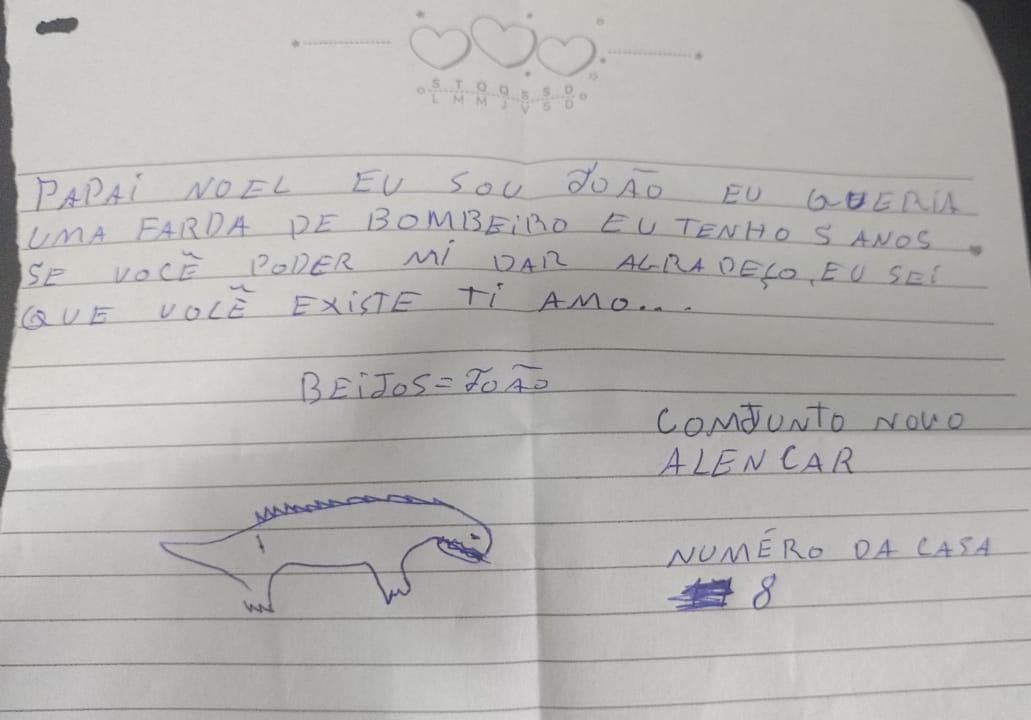 S T Q Q S S D
L M M J V S D
PAPAi NOEL EU SOU JOÃO EU QUERiA
UMA FARDA DE BOMBEiRO EU TENHO 5 ANOS.
SE VOCÊ PODER Mi DAR AGRADEÇO. EU SEi
QUE VOCÊ EXiSTE Ti AMO....
BEiJOS = JOÃO
COMJUNTO NOVO
ALENCAR
NUMÉRO DA CASA
8